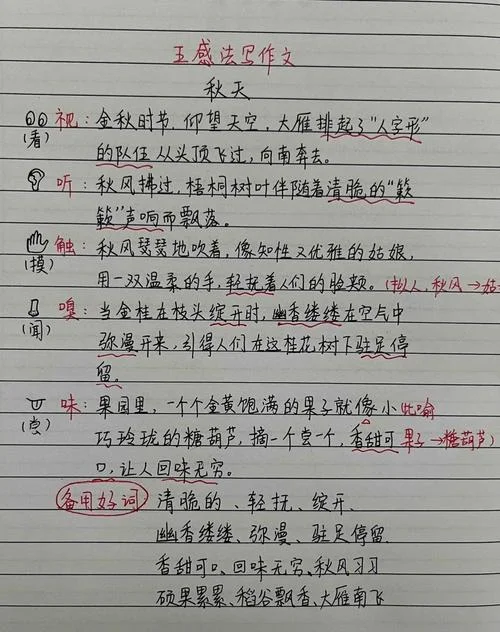 五感法写作文
秋天
视：金秋时节，仰望天空，大雁排起了"人字形"
(看) 的队伍从头顶飞过，向南奔去。
听：秋风拂过，梧桐树叶伴随着清脆的"簌
簌"声响而飘落。
触：秋风瑟瑟地吹着，像知性又优雅的姑娘，
(摸) 用一双温柔的手，轻抚着人们的脸颊。(拟人，秋风→姑
嗅：当金桂在枝头绽开时，幽香缕缕在空气中
(闻) 弥漫开来，引得人们在这桂花树下驻足停
留。
味：果园里，一个个金黄饱满的果子就像小 比喻
(尝) 巧玲珑的糖葫芦，摘一个尝一个，香甜可 果子→糖葫芦)
口，让人回味无穷。
备用好词 清脆的、轻抚、绽开、
幽香缕缕、弥漫、驻足停留
香甜可口、回味无穷、秋风习习
硕果累累、稻谷飘香、大雁南飞